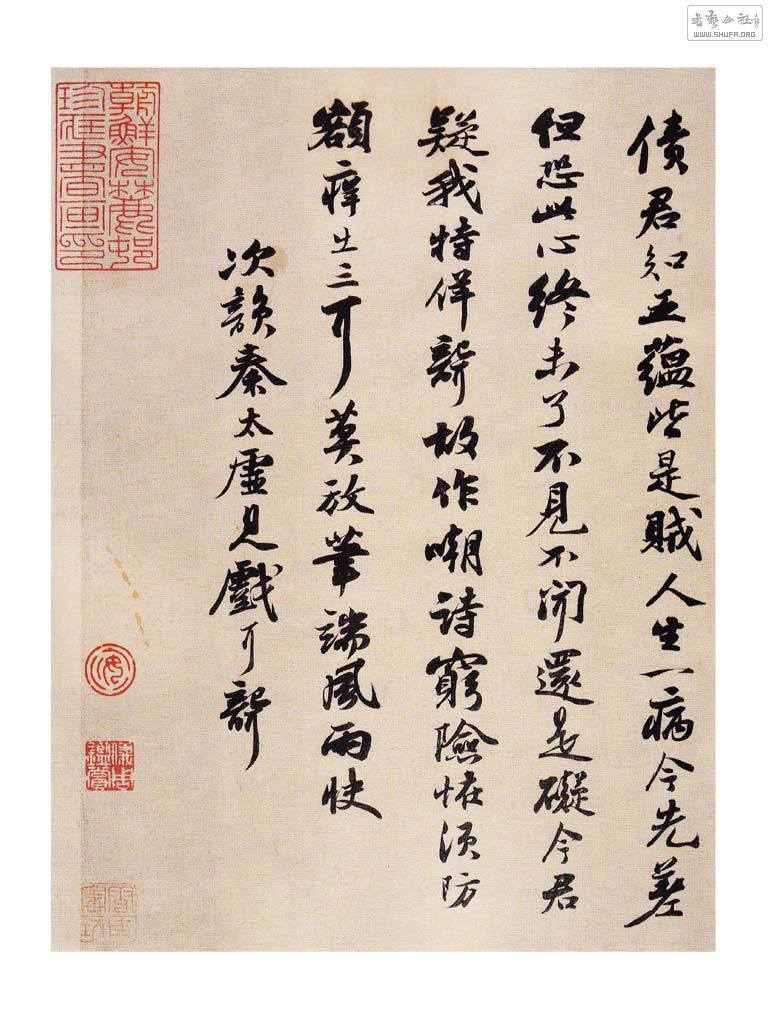 債君知五蘊皆是賊人生一病今先差
但恐此心終未了不見不聞還是礙今君
疑我特佯聾故作嘲詩窮險恠須防
額痒出三耳莫放筆端風雨快
次韻秦太虛見戲耳聾
朝鮮安麓邨
珍藏書畫印
儀周
鑑賞
書藝公社
WWW.SHUFA.ORG